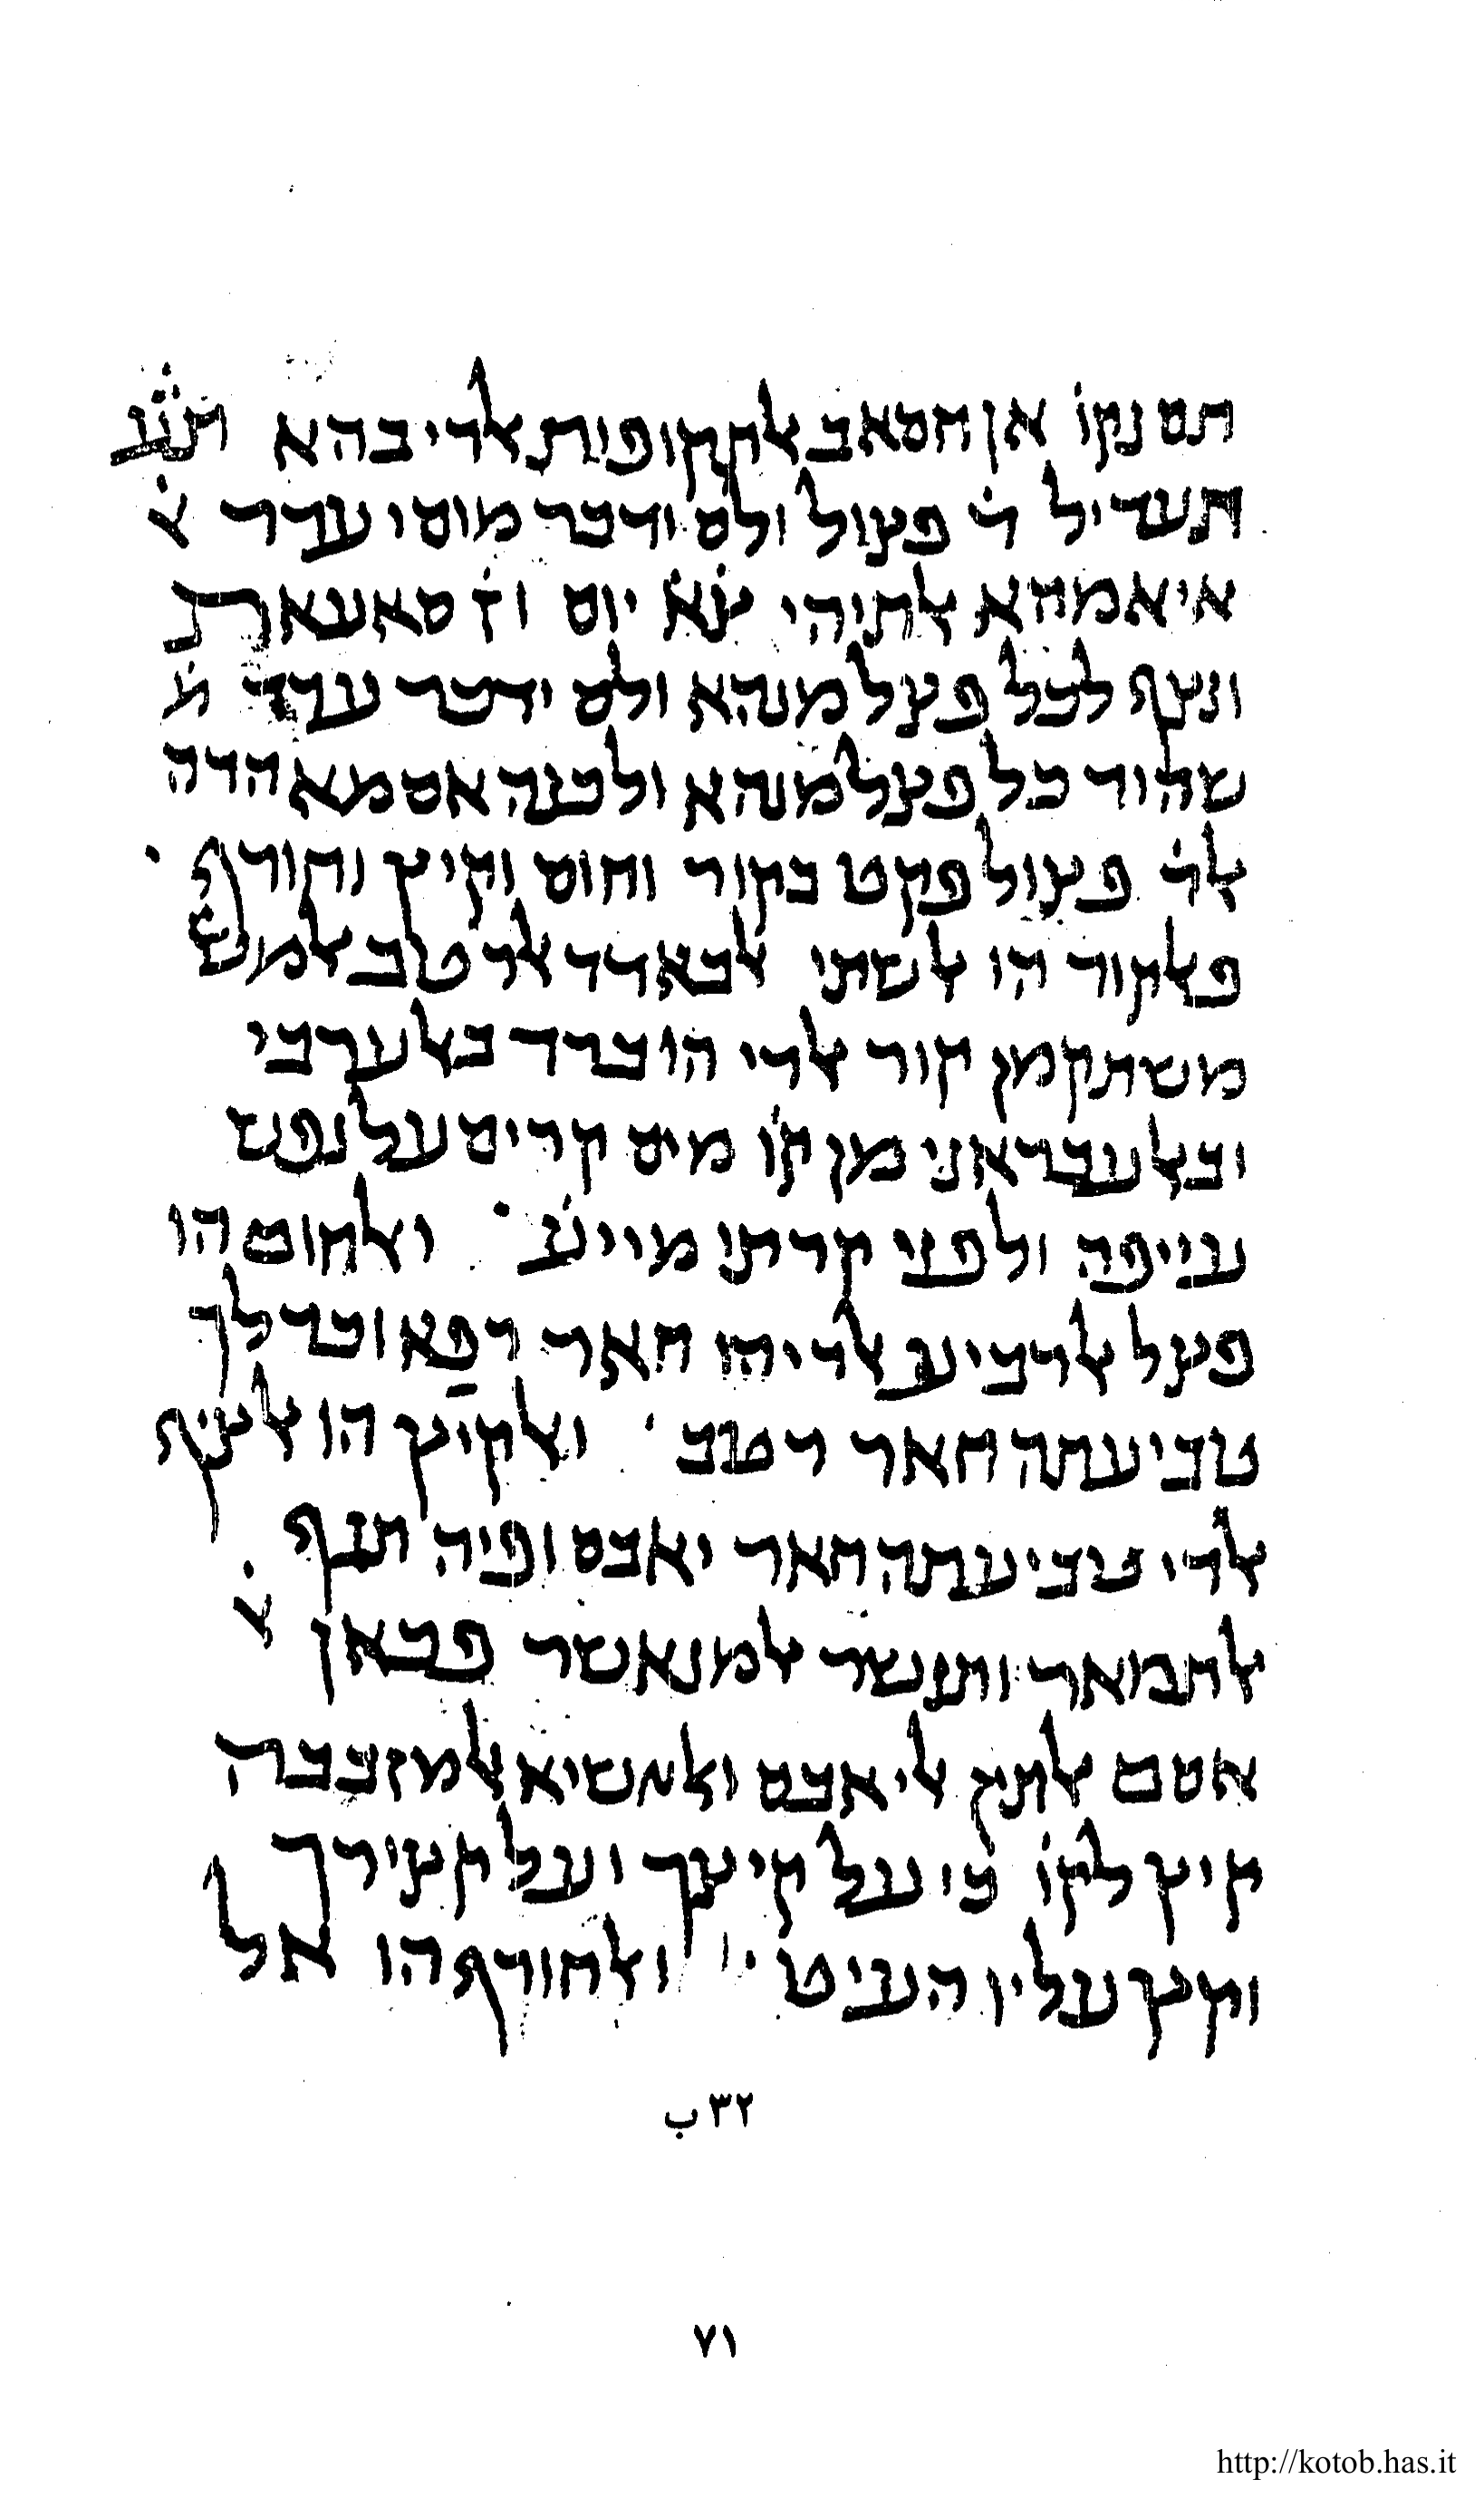 תם נקו אן חסאב אלתקופות אלדי בהא
תעדיל ד פצול ולם ידכר מוסי עדד
איאמהא אלתי הי צא יום וז סאעאת
ונצף לכל פצל מנהא ולם ידכר עדד
שהור כל פצל מנהא ולכנה אסמא הדה
אלד פצול פקט בקור וחום וקיץ וחורף
פאלקור הו אלשתי אלבארד אלרטב
משתק מן קור אלדי הו ברד באלערבי
ובאלעבראני מן קו מים קרים על נפש
עייפה ולפני קרתו מי יע ואלחום הו
פצל אלרביע אלדי הו חאר
טביעתה חאר רטב ואלקיץ הו אלציף
אלדי טביעתה חאר יאבס ופיה
אלתמאר ותנשר אלמנאשר
אסם אלתין אליאבס ואלאשיא אלמזבבה
קיץ לקו כי על קיצך ועל קצירך
וקץ עליו העיט ואלחורף הו אל
٣٢ب
٧١
http://kotob.has.it